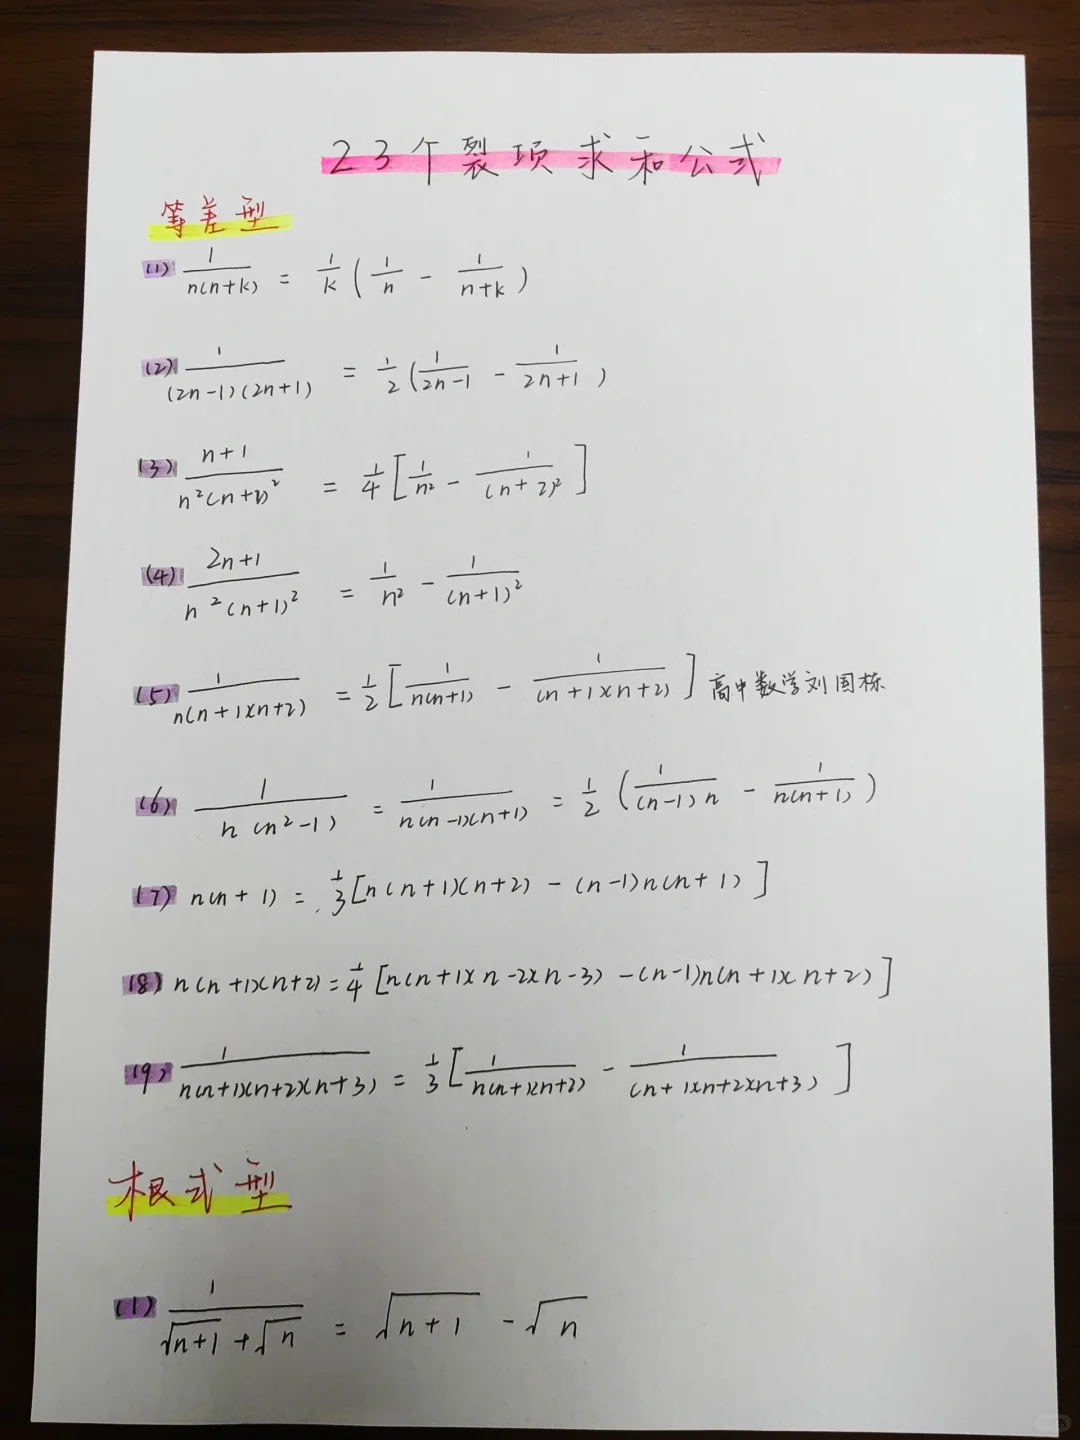 23个裂项求和公式
等差型
(1) 1/n(n+k) = 1/k (1/n - 1/n+k)
(2) 1/(2n-1)(2n+1) = 1/2 (1/2n-1 - 1/2n+1)
(3) n+1/n²(n+2)² = 1/4 [1/n² - 1/(n+2)²]
(4) 2n+1/n²(n+1)² = 1/n² - 1/(n+1)²
(5) 1/n(n+1)(n+2) = 1/2 [1/n(n+1) - 1/(n+1)(n+2)] 高中数学刘国栋
(6) 1/n(n²-1) = 1/n(n-1)(n+1) = 1/2 (1/(n-1)n - 1/n(n+1))
(7) n(n+1) = 1/3 [n(n+1)(n+2) - (n-1)n(n+1)]
(8) n(n+1)(n+2) = 1/4 [n(n+1)(n-2)(n-3) - (n-1)n(n+1)(n+2)]
(9) 1/n(n+1)(n+2)(n+3) = 1/3 [1/n(n+1)(n+2) - 1/(n+1)(n+2)(n+3)]
根式型
(1) 1/√n+1 + √n = √n+1 - √n